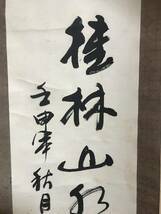 桂林山水
壬申年秋月